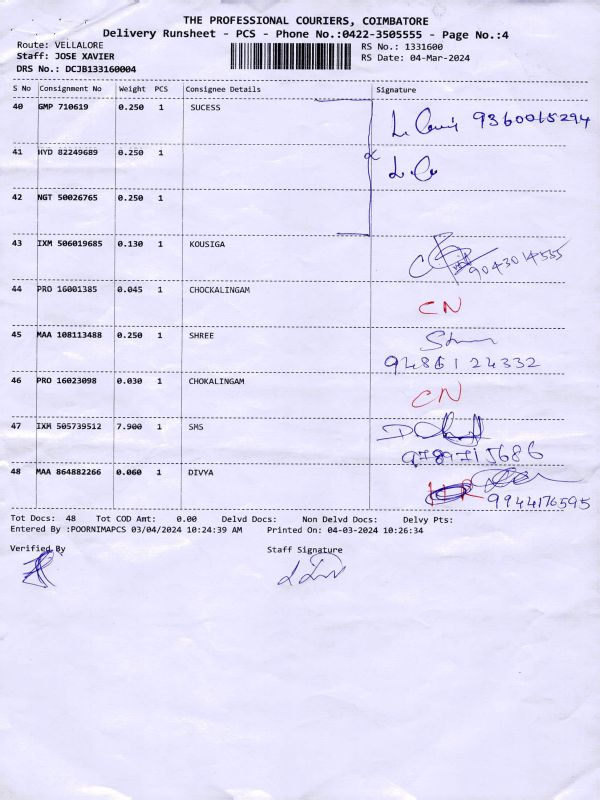 THE PROFESSIONAL COURIERS, COIMBATORE
Delivery Runsheet - PCS - Phone No.:0422-3505555 - Page No.:4
Route: VELLALORE RS No.: 1331600
Staff: JOSE XAVIER RS Date: 04-Mar-2024
DRS No.: DCJB133160004
S No Consignment No Weight PCS Consignee Details Signature
40 GMP 710619 0.250 1 SUCESS
9360065294
41 HYD 82249689 0.250 1
42 NGT 50026765 0.250 1
43 IXM 506019685 0.130 1 KOUSIGA
9043014555
44 PRO 16001385 0.045 1 CHOCKALINGAM
CN
45 MAA 108113488 0.250 1 SHREE
9486124332
46 PRO 16023098 0.030 1 CHOKALINGAM
CN
47 IXM 505739512 7.900 1 SMS
9789715686
48 MAA 864882266 0.060 1 DIVYA
9944176595
Tot Docs: 48 Tot COD Amt: 0.00 Delvd Docs: Non Delvd Docs: Delvy Pts:
Entered By :POORNIMAPCS 03/04/2024 10:24:39 AM Printed On: 04-03-2024 10:26:34
Verified By Staff Signature